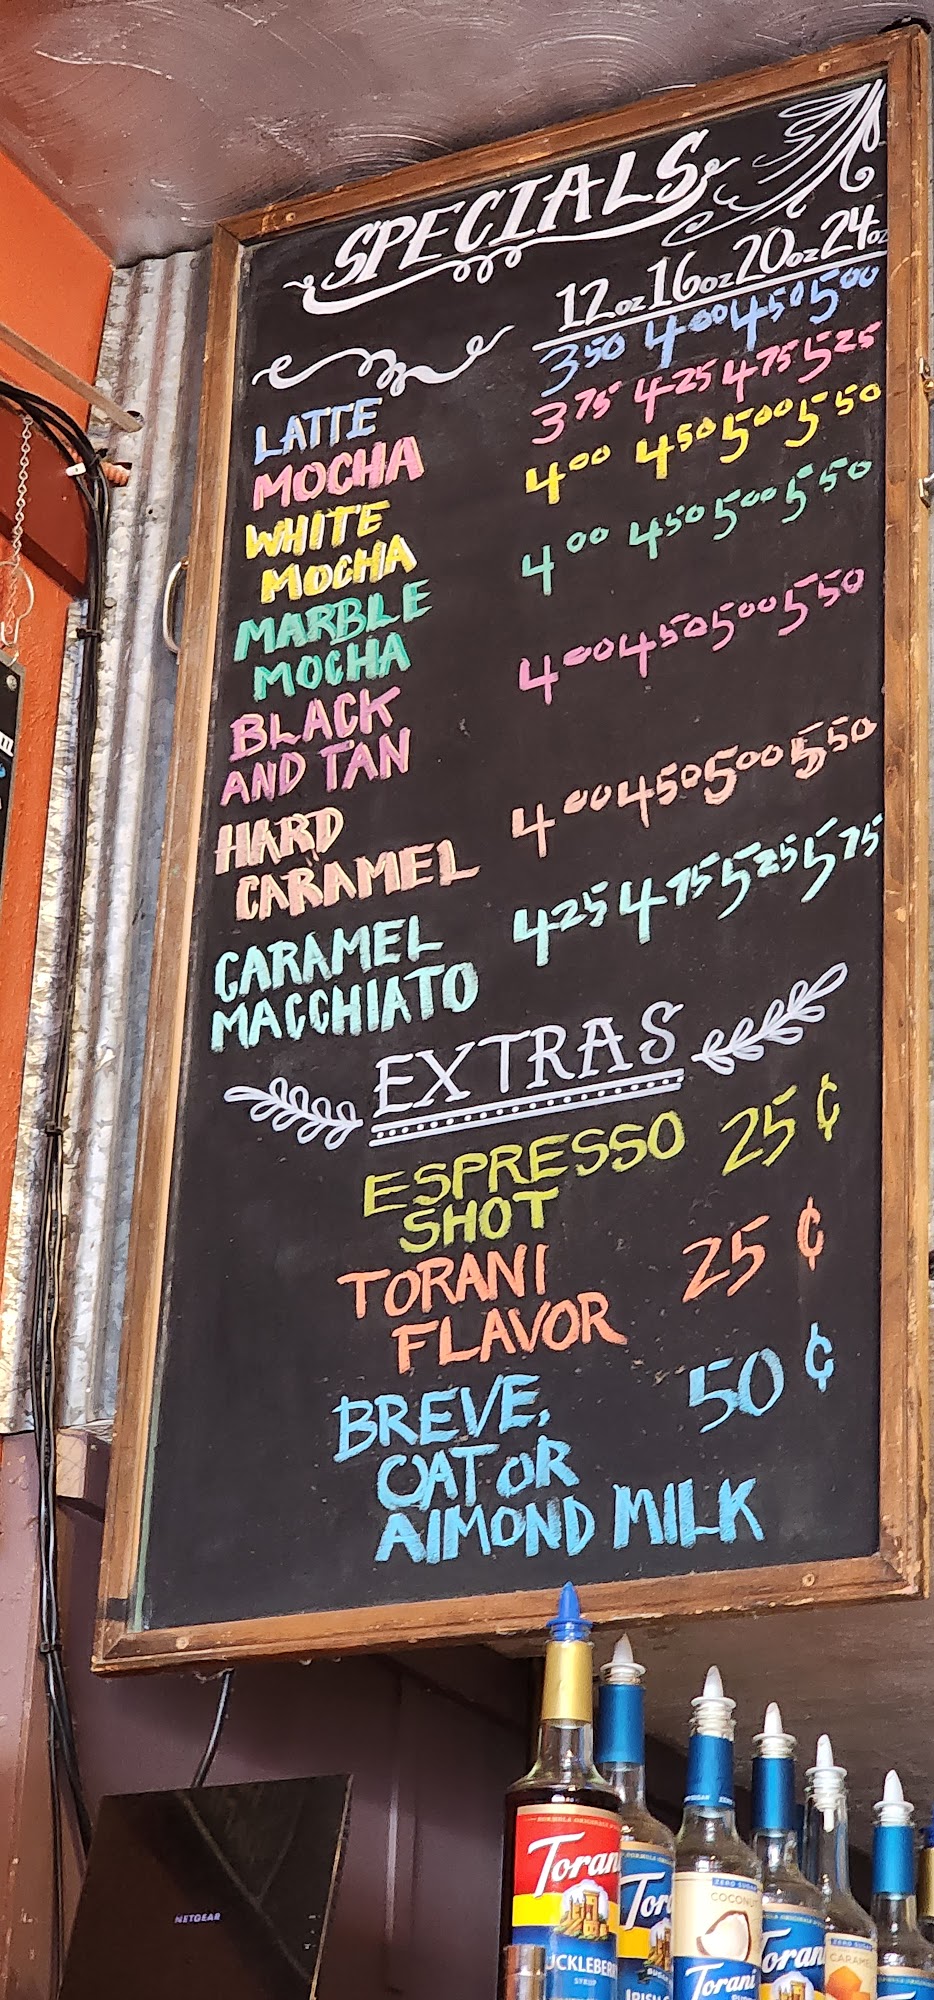 SPECIALS
12oz 16oz 20oz 24oz
LATTE 3.50 4.00 4.50 5.00
MOCHA 3.75 4.25 4.75 5.25
WHITE 4.00 4.50 5.00 5.50
MOCHA
MARBLE 4.00 4.50 5.00 5.50
MOCHA
BLACK 4.00 4.50 5.00 5.50
AND TAN
HARD 4.00 4.50 5.00 5.50
CARAMEL
CARAMEL 4.25 4.75 5.25 5.75
MACCHIATO
EXTRAS
ESPRESSO 25¢
SHOT
TORANI 25¢
FLAVOR
BREVE, 50¢
OAT OR
AlMOND MILK
NETGEAR
Torani
SYRUP
Tor
ZERO SUGAR
COCONUT
Torani
Torani
ZERO SUGAR
CARAME